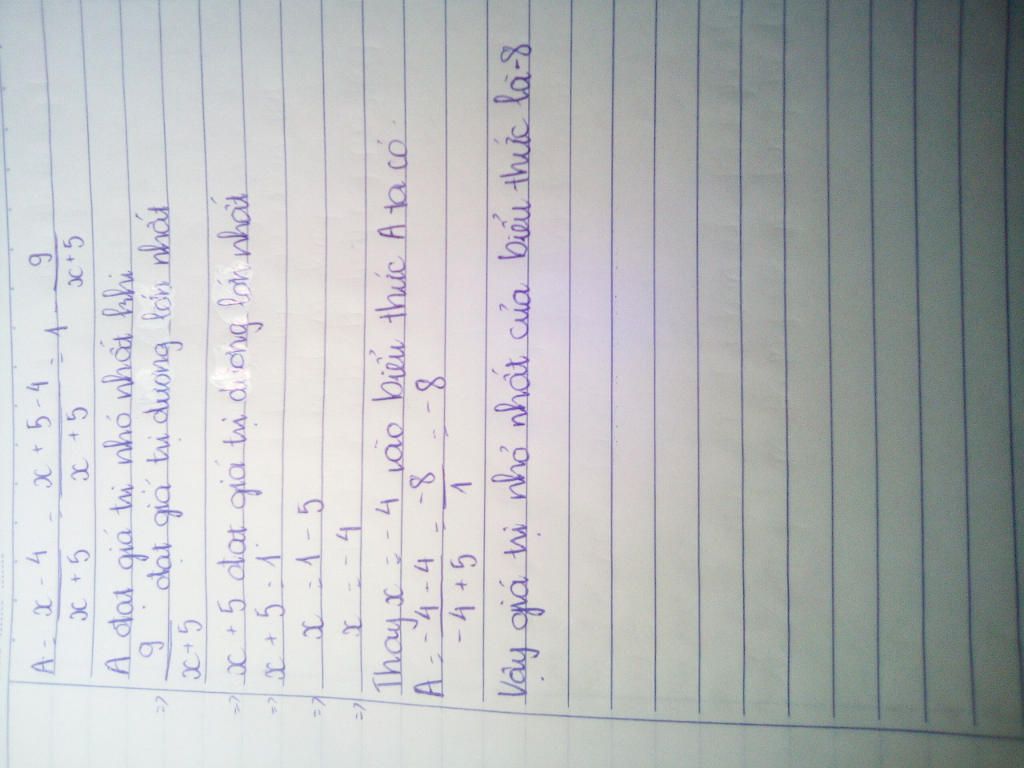 A = x - 4 / x + 5 = x + 5 - 4 / x + 5 = 1 - 9 / x + 5
A đạt giá trị nhỏ nhất khi
=> 9 / x + 5 đạt giá trị dương lớn nhất
=> x + 5 đạt giá trị dương lớn nhất
=> x + 5 = 1
=> x = 1 - 5
=> x = -4
Thay x = -4 vào biểu thức A ta có
A = -4 - 4 / -4 + 5 = -8 / 1 = -8
Vậy giá trị nhỏ nhất của biểu thức là -8